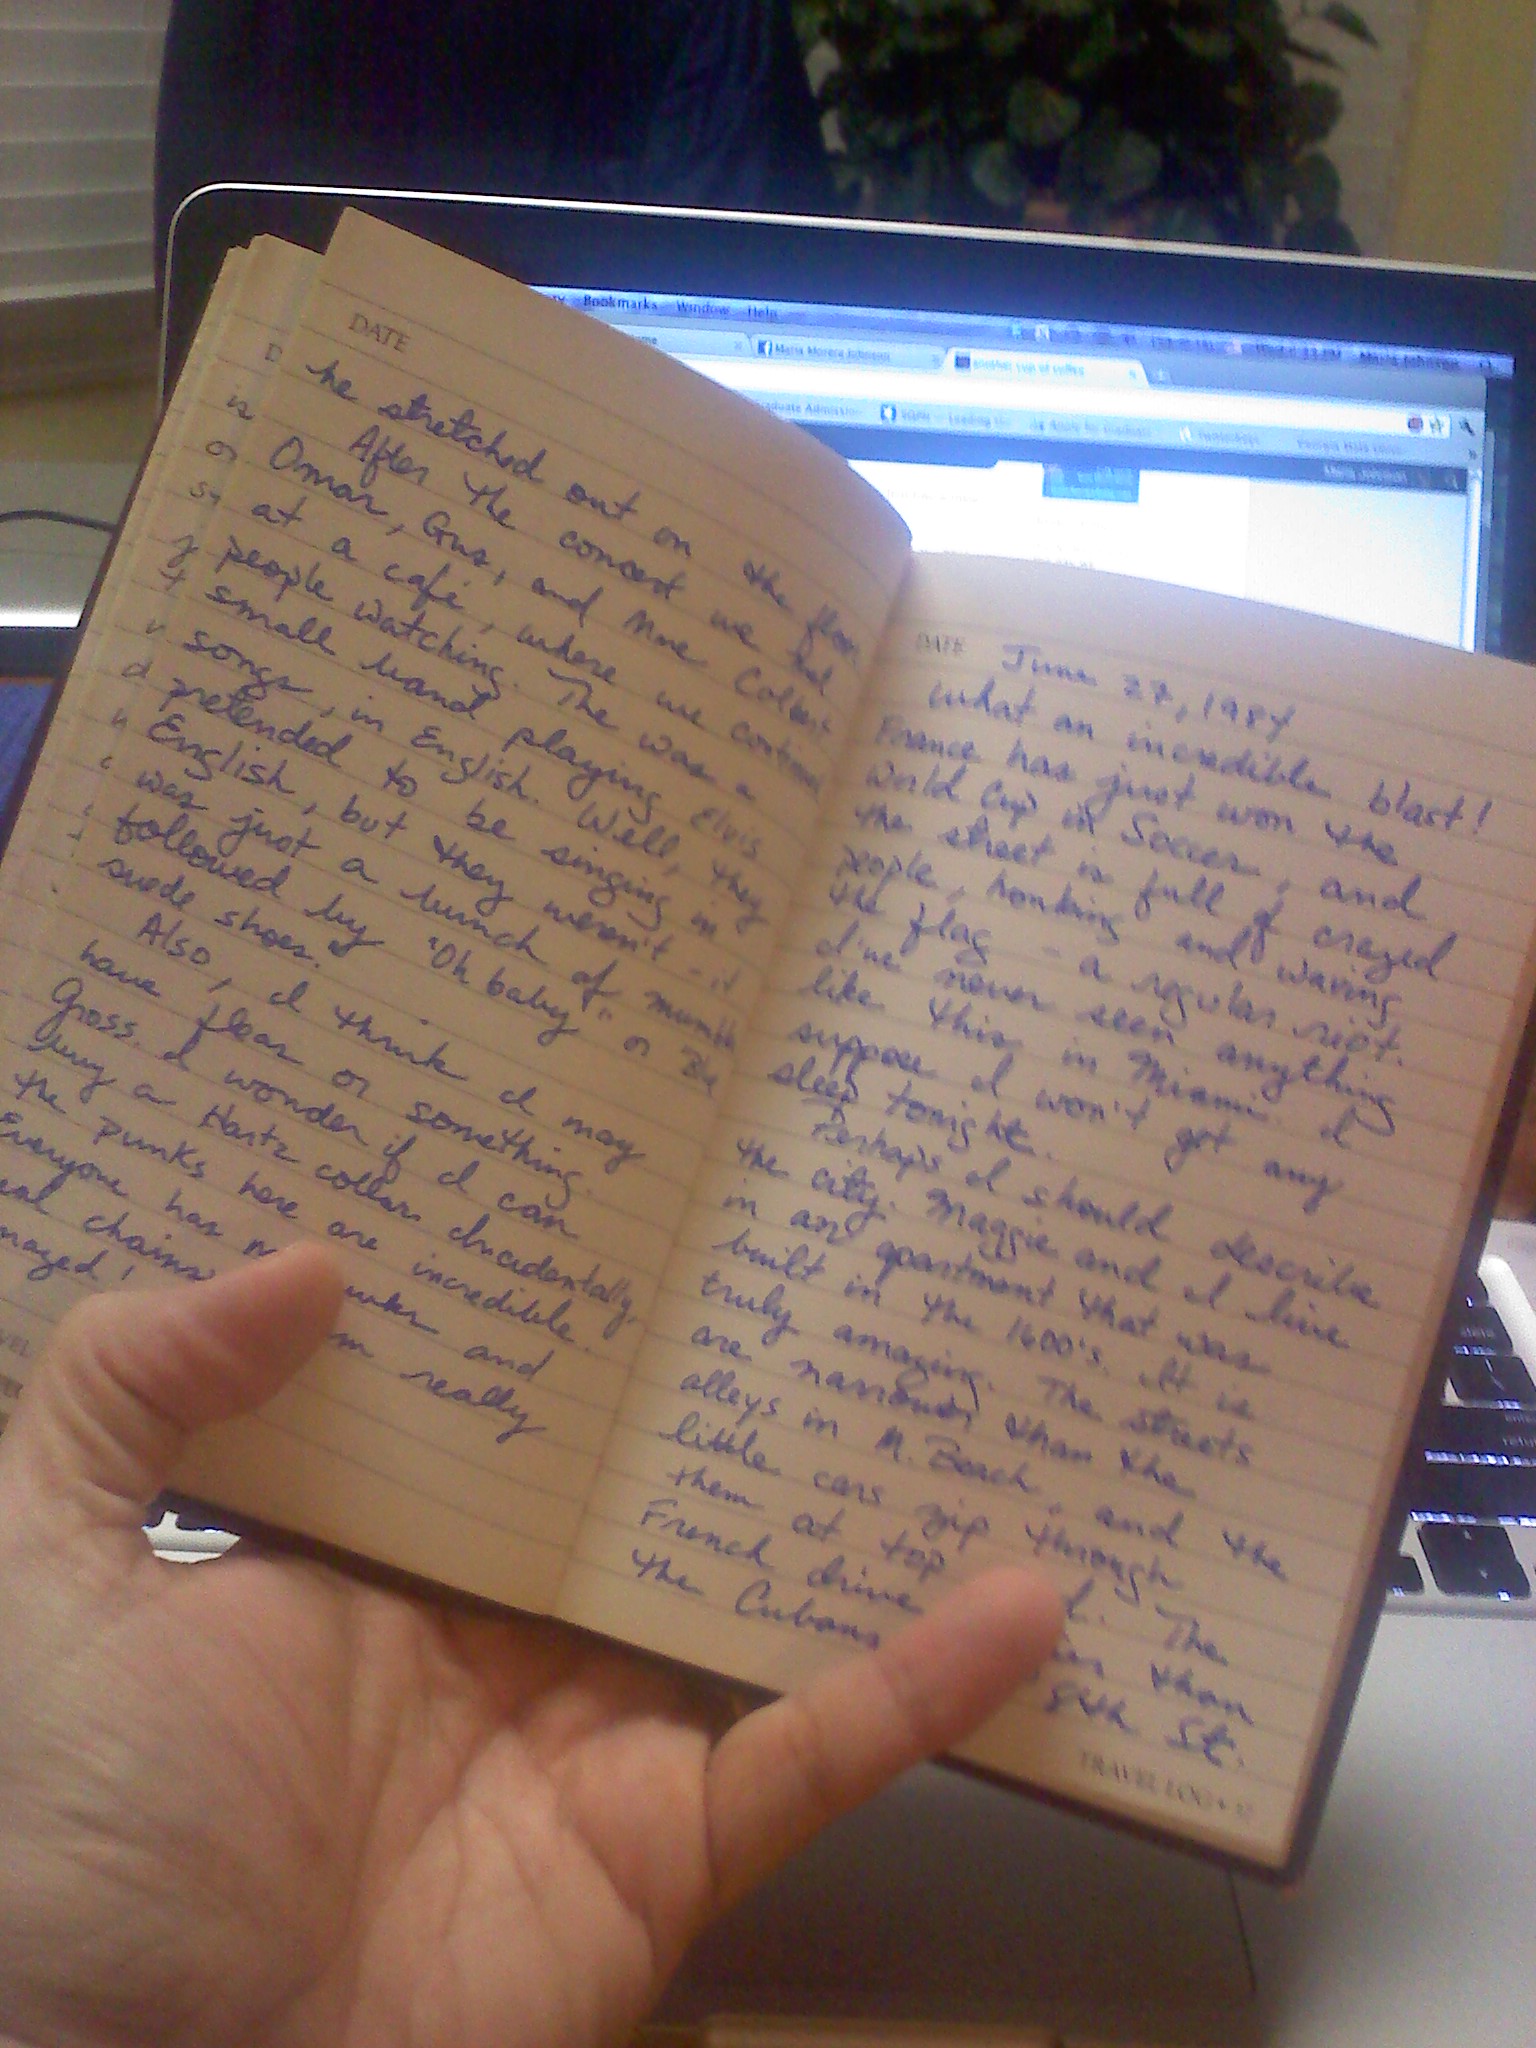 Bookmarks Window Help
Maria Morera Johnson
another cup of coffee
DATE
he stretched out on the floor
After the concert we had
Omar, Gus, and Mme Colbert
at a café, where we continued
people watching. The was a
small band playing Elvis
songs, in English. Well, they
pretended to be singing in
English, but they weren't - it
was just a bunch of mumble
followed by "Oh baby," or Blue
suede shoes."
Also, I think I may
have fleas or something.
Gross. I wonder if I can
buy a Hartz collar. Incidentally,
the punks here are incredible.
Everyone has and
chains really
DATE June 27, 1984
What an incredible blast!
France has just won the
World Cup in Soccer, and
the street is full of crazed
people, honking and waving
the flag - a regular riot.
I've never seen anything
like this in Miami. I
suppose I won't get any
sleep tonight.
Perhaps I should describe
the city. Maggie and I live
in an apartment that was
built in the 1600's. It is
truly amazing. The streets
are narrower than the
alleys in M. Beach, and the
little cars zip through
them at top The
French drive than
the Cubans 8th St.
TRAVEL LOG